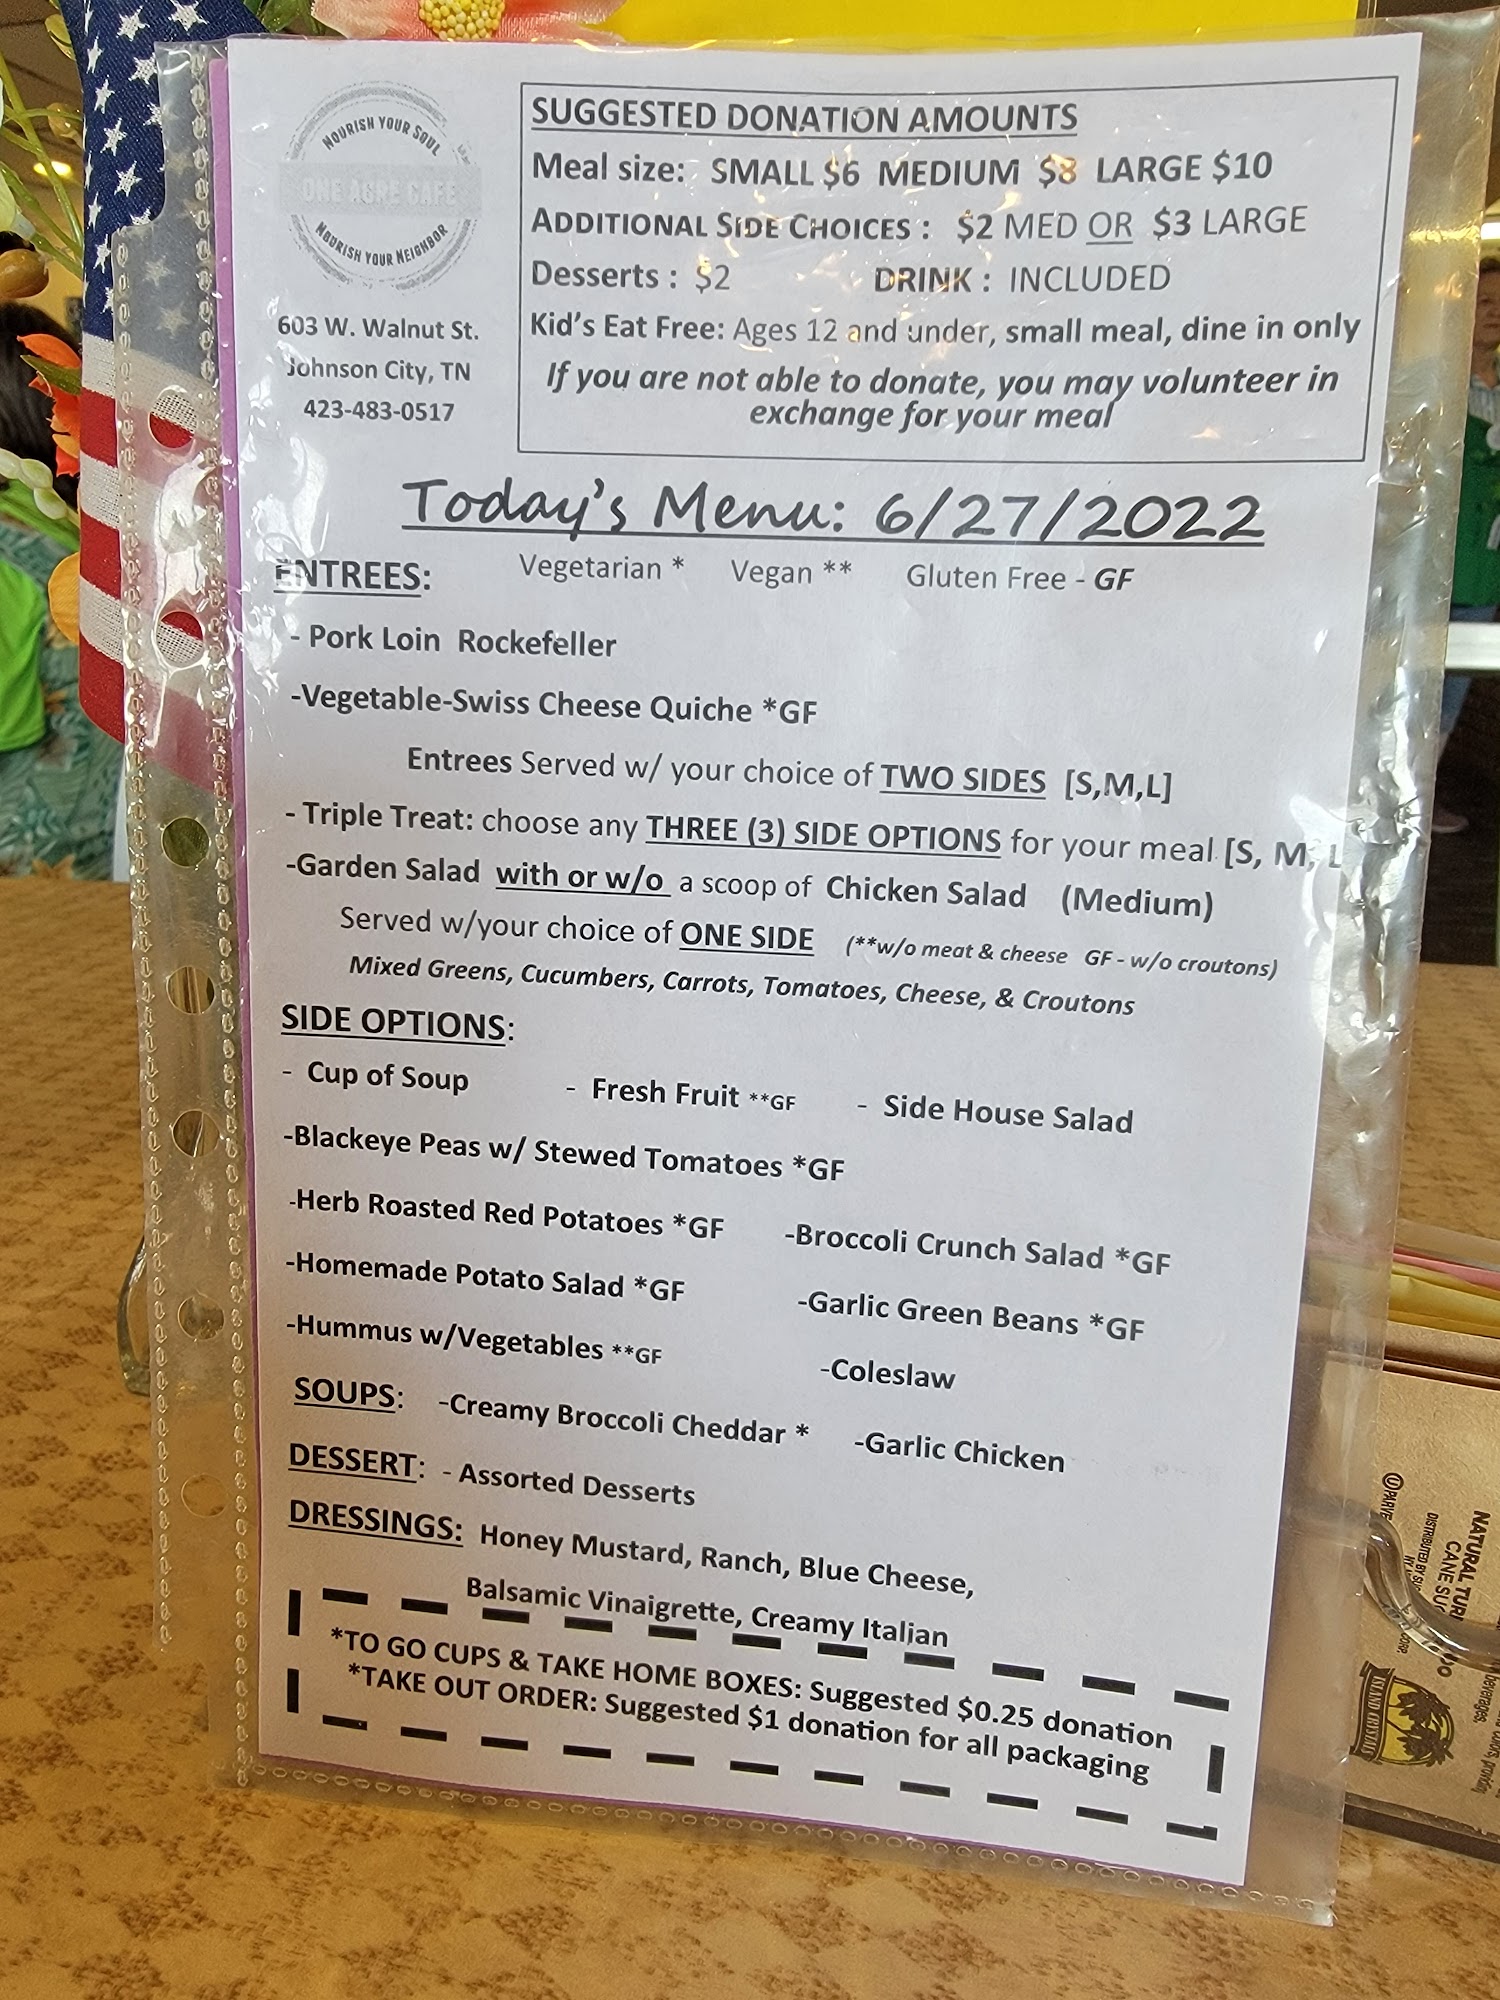 NOURISH YOUR SOUL
ONE ACRE CAFE
NOURISH YOUR NEIGHBOR
603 W. Walnut St.
Johnson City, TN
423-483-0517
SUGGESTED DONATION AMOUNTS
Meal size: SMALL $6 MEDIUM $8 LARGE $10
ADDITIONAL SIDE CHOICES : $2 MED OR $3 LARGE
Desserts : $2 DRINK : INCLUDED
Kid's Eat Free: Ages 12 and under, small meal, dine in only
If you are not able to donate, you may volunteer in
exchange for your meal
Today's Menu: 6/27/2022
ENTREES: Vegetarian * Vegan ** Gluten Free - GF
- Pork Loin Rockefeller
-Vegetable-Swiss Cheese Quiche *GF
Entrees Served w/ your choice of TWO SIDES [S,M,L]
- Triple Treat: choose any THREE (3) SIDE OPTIONS for your meal [S, M, L
-Garden Salad with or w/o a scoop of Chicken Salad (Medium)
Served w/your choice of ONE SIDE (**w/o meat & cheese GF - w/o croutons)
Mixed Greens, Cucumbers, Carrots, Tomatoes, Cheese, & Croutons
SIDE OPTIONS:
- Cup of Soup - Fresh Fruit **GF - Side House Salad
-Blackeye Peas w/ Stewed Tomatoes *GF
-Herb Roasted Red Potatoes *GF -Broccoli Crunch Salad *GF
-Homemade Potato Salad *GF -Garlic Green Beans *GF
-Hummus w/Vegetables **GF -Coleslaw
SOUPS: -Creamy Broccoli Cheddar * -Garlic Chicken
DESSERT: - Assorted Desserts
DRESSINGS: Honey Mustard, Ranch, Blue Cheese,
Balsamic Vinaigrette, Creamy Italian
*TO GO CUPS & TAKE HOME BOXES: Suggested $0.25 donation
*TAKE OUT ORDER: Suggested $1 donation for all packaging
NATURAL
CANE
DISTRIBUTED BY